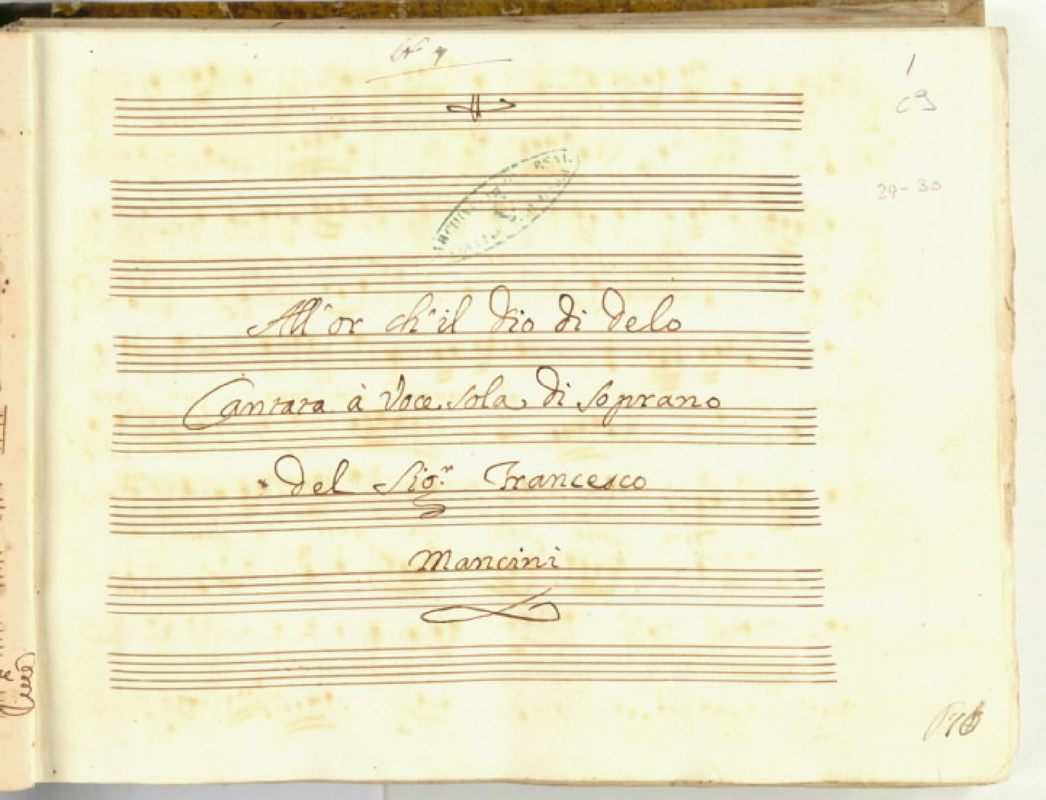 1
c9
29-30
All'or ch'il Dio di Delo
Cantata à Voce sola di Soprano
del Sig.r Francesco
Mancini